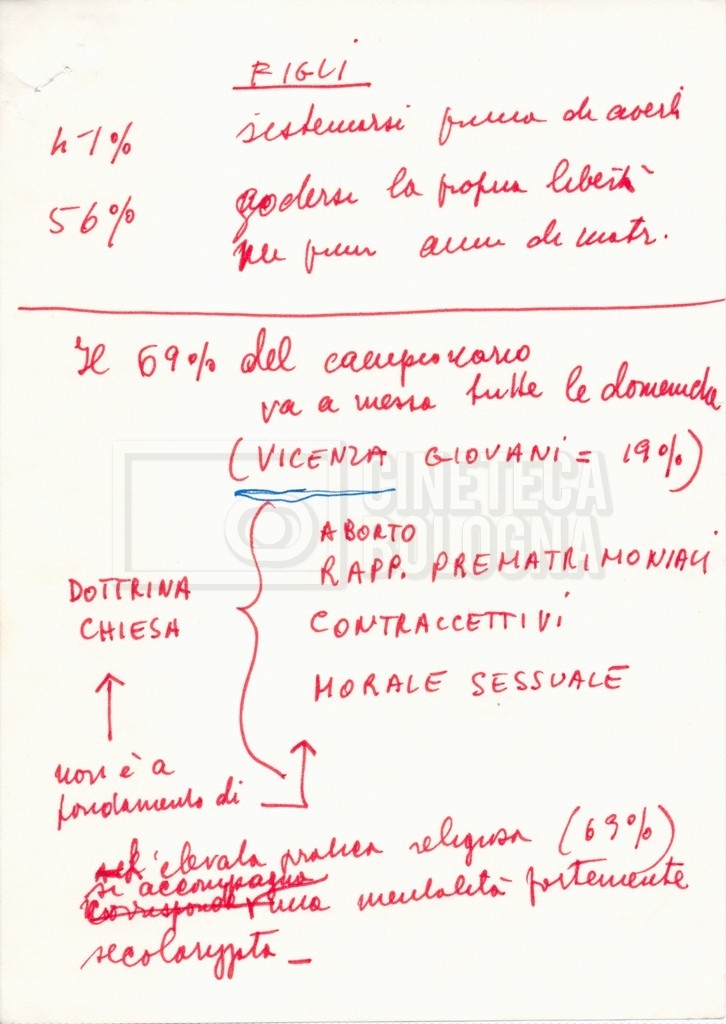 FIGLI
41% sistemarsi prima di averli
56% godersi la propria libertà
nei primi anni di matr.
Il 69% del campionario
va a messa tutte le domeniche
(VICENZA GIOVANI = 19%)
CINETECA
BOLOGNA
ABORTO
RAPP. PREMATRIMONIALI
DOTTRINA
CHIESA
CONTRACCETTIVI
MORALE SESSUALE
non è a
fondamento di
L'elevata pratica religiosa (69%)
si accompagna
corrisponde una mentalità fortemente
secolarizzata _